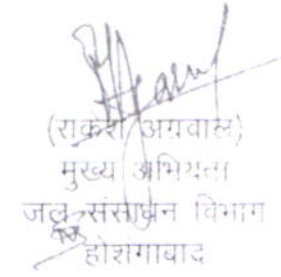 (राकेश अग्रवाल)
मुख्य अभियंता
जल संसाधन विभाग
होशंगाबाद